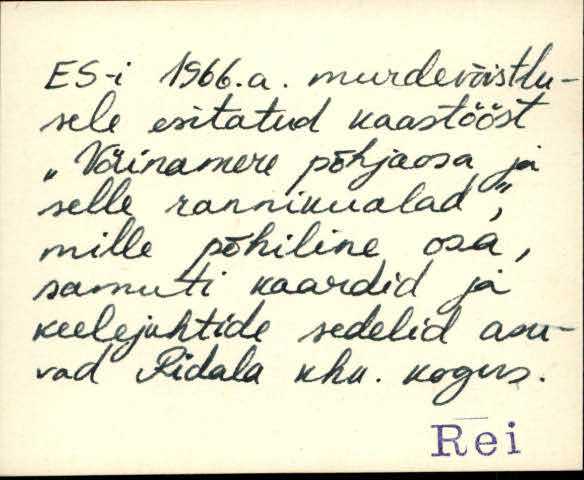 ES-i 1966.a. murdevõistlu-
sele esitatud kaastööst
„Väinamere põhjaosa ja
selle rannikualad",
mille põhiline osa,
samuti kaardid ja
keelejuhtide sedelid asu-
vad Ridala khk. kogus.
Rei